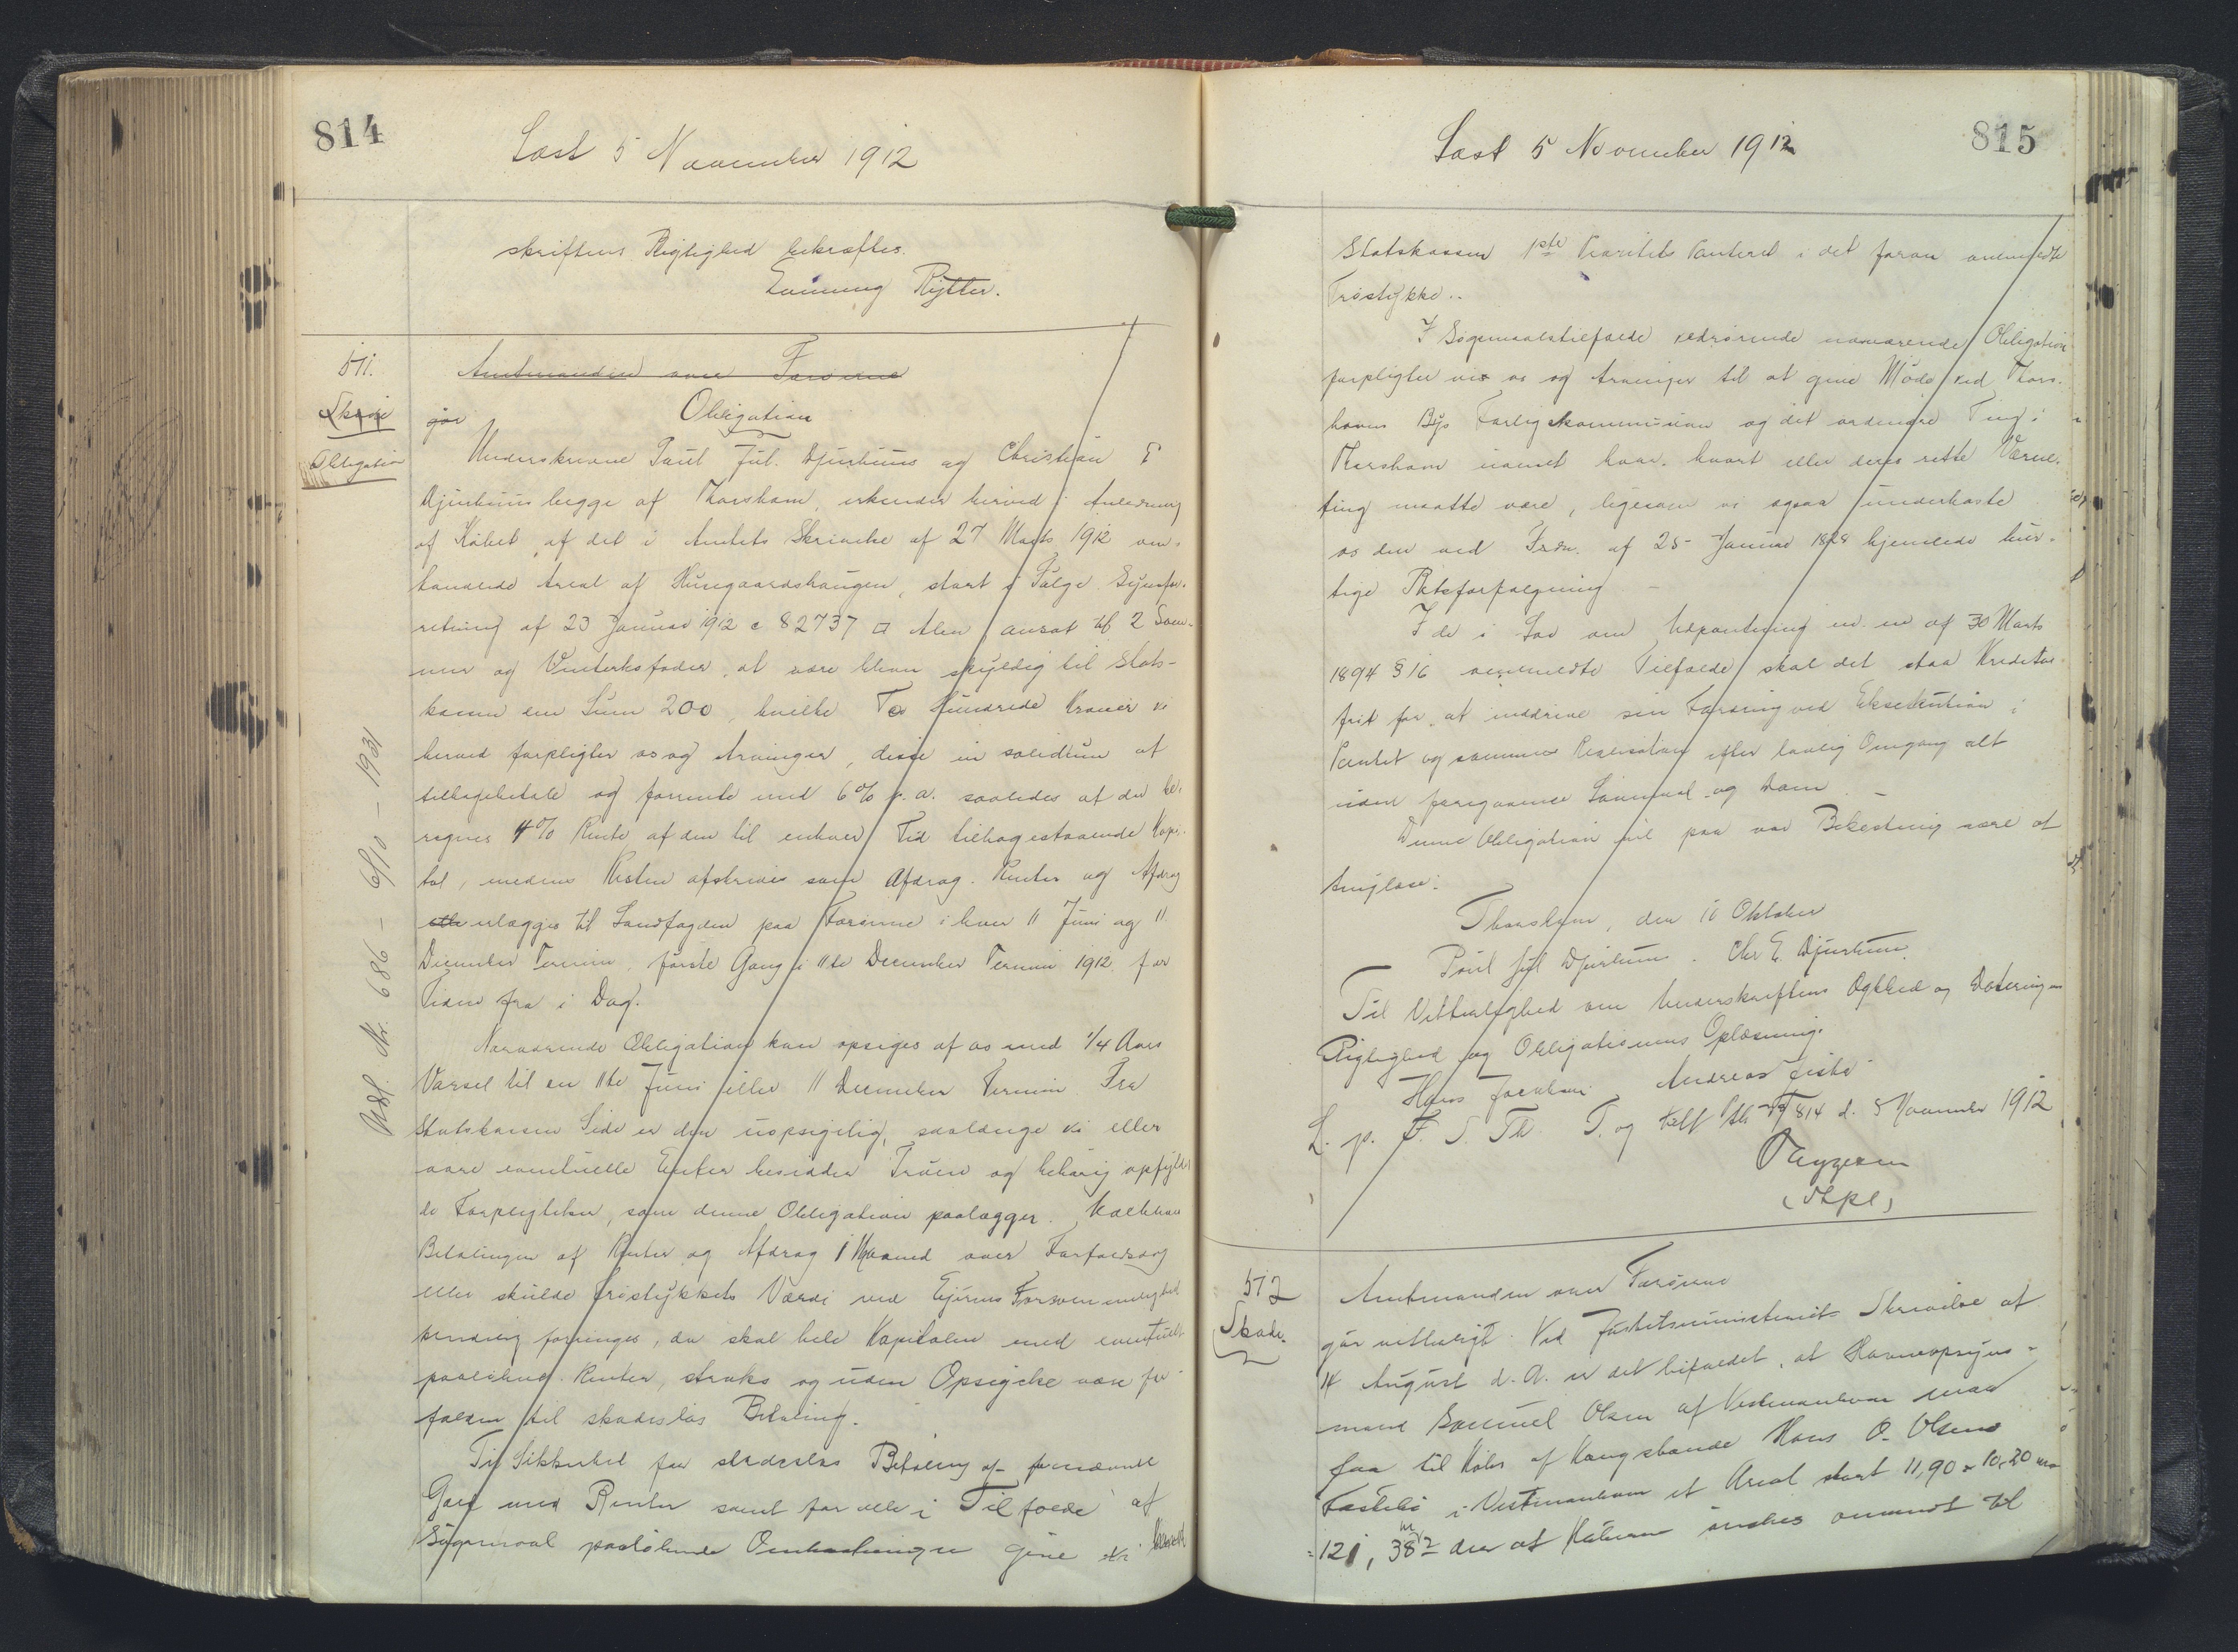 814
Læst 5 November 1912
skriftens Rigtighed bekræftes.
Rytter.
511.
Amtmanden over Færøerne
Skøde
gør Obligation
Obligation
Underskrevne Poul Jul. Djurhuus og Christian E
Djurhuus begge af Thorshavn, erkender herved i Anledning
af Købet af det i Amtets Skrivelse af 27 Marts 1912 om-
handlede Areal af Husegaardshaugen, stort i Følge Synsfor-
retning af 23 Januar 1912 c 82737 □ Alen ansat til 2 Som-
mer og Vinterksfoder, at være bleven skyldig til Stats-
kassen en Sum 200, hvilke To Hundrede Kroner vi
herved forpligter os og Arvinger, disse in solidum at
tilbagebetale og forrente med 6% p.a. saaledes at der be-
regnes 4% Rente af den til enhver Tid tilbagestaaende Kapi-
tal, medens Resten afskrives som Afdrag. Renter og Afdrag
erlægges til Landfogden paa Færøerne i hver 11 Juni og 11
December Termin, første Gang i 11te December Termin 1912 for
Tiden fra i Dag.
Nærværende Obligation kan opsiges af os med 1/4 Aars
Varsel til en 11te Juni eller 11 December Termin Fra
Statskassens Side er den uopsigelig, saalænge vi eller
vore eventuelle Enker besidder Trøen og behørig opfylder
de Forpligtelser, som denne Obligation paalægger.
Betalingen af Renter og Afdrag 1 Maaned over Forfaldsdag
eller skulde Trøstykkets Værdi ved Ejerens
forringes, da skal hele Kapitalen med eventuelt
paaløbne Renter, straks og uden Opsigelse være for-
falden til skadesløs Betaling.
Til Sikkerhed for skadesløs Betaling af fornævnte
Gæld med Renter samt for alle i Tilfælde af
Søgsmaal paaløbende Omkostninger give vi herved
Udsl. Nr. 686 - 6/10 - 1931
815
Læst 5 November 1912
Statskassen 1ste Prioritets Panteret i det foran ommeldte
Trøstykke..
I Søgsmaalstilfælde vedrørende nærværende Obligation
forpligter vi os og Arvinger til at give Møde ved Thors-
havns Bys Forligskommission og det ordinære Ting i
Thorshavn uanset hvor vort eller deres rette Værne-
ting maatte være, ligesom vi ogsaa underkaste
os den ved Frdn. af 25 Januar 1828 hjemlede hur-
tige Retsforfølgning
I de i Lov om Udpantning m. m af 30 Marts
1894 § 16 ommeldte Tilfælde skal det staa Kreditor
frit for, at inddrive sin Fordring ved Eksekution i
Pantet og sammes Realisation efter lovlig Omgang alt
uden foregaaende Søgsmaal og Dom
Denne Obligation vil paa vor Bekostning være at
tinglæse.
Thorshavn, den 10 Oktober
Poul Jul Djurhuus. Chr E. Djurhuus.
Til Vitterlighed om Underskriftens Ægthed og Dateringens
Rigtighed og Obligationens Oplæsning.
Hans Jacobsen Andreas
L. p. F. S. Th T. og 814 d. 5 November 1912
512
Skøde.
Amtmanden over Færøerne
gør vitterligt. Ved Justitsministeriets Skrivelse af
14 August d. A. er det bifaldet, at Havneopsyns-
mand Samuel Olsen af Vestmanhavn maa
faa til Købs af Kongsbonde Hans O. Olsens
Fæstelse i Vestmanhavn et Areal stort 11,90 × 10,20 m
= 121,38 m2 der af Køberen ønskes anvendt til